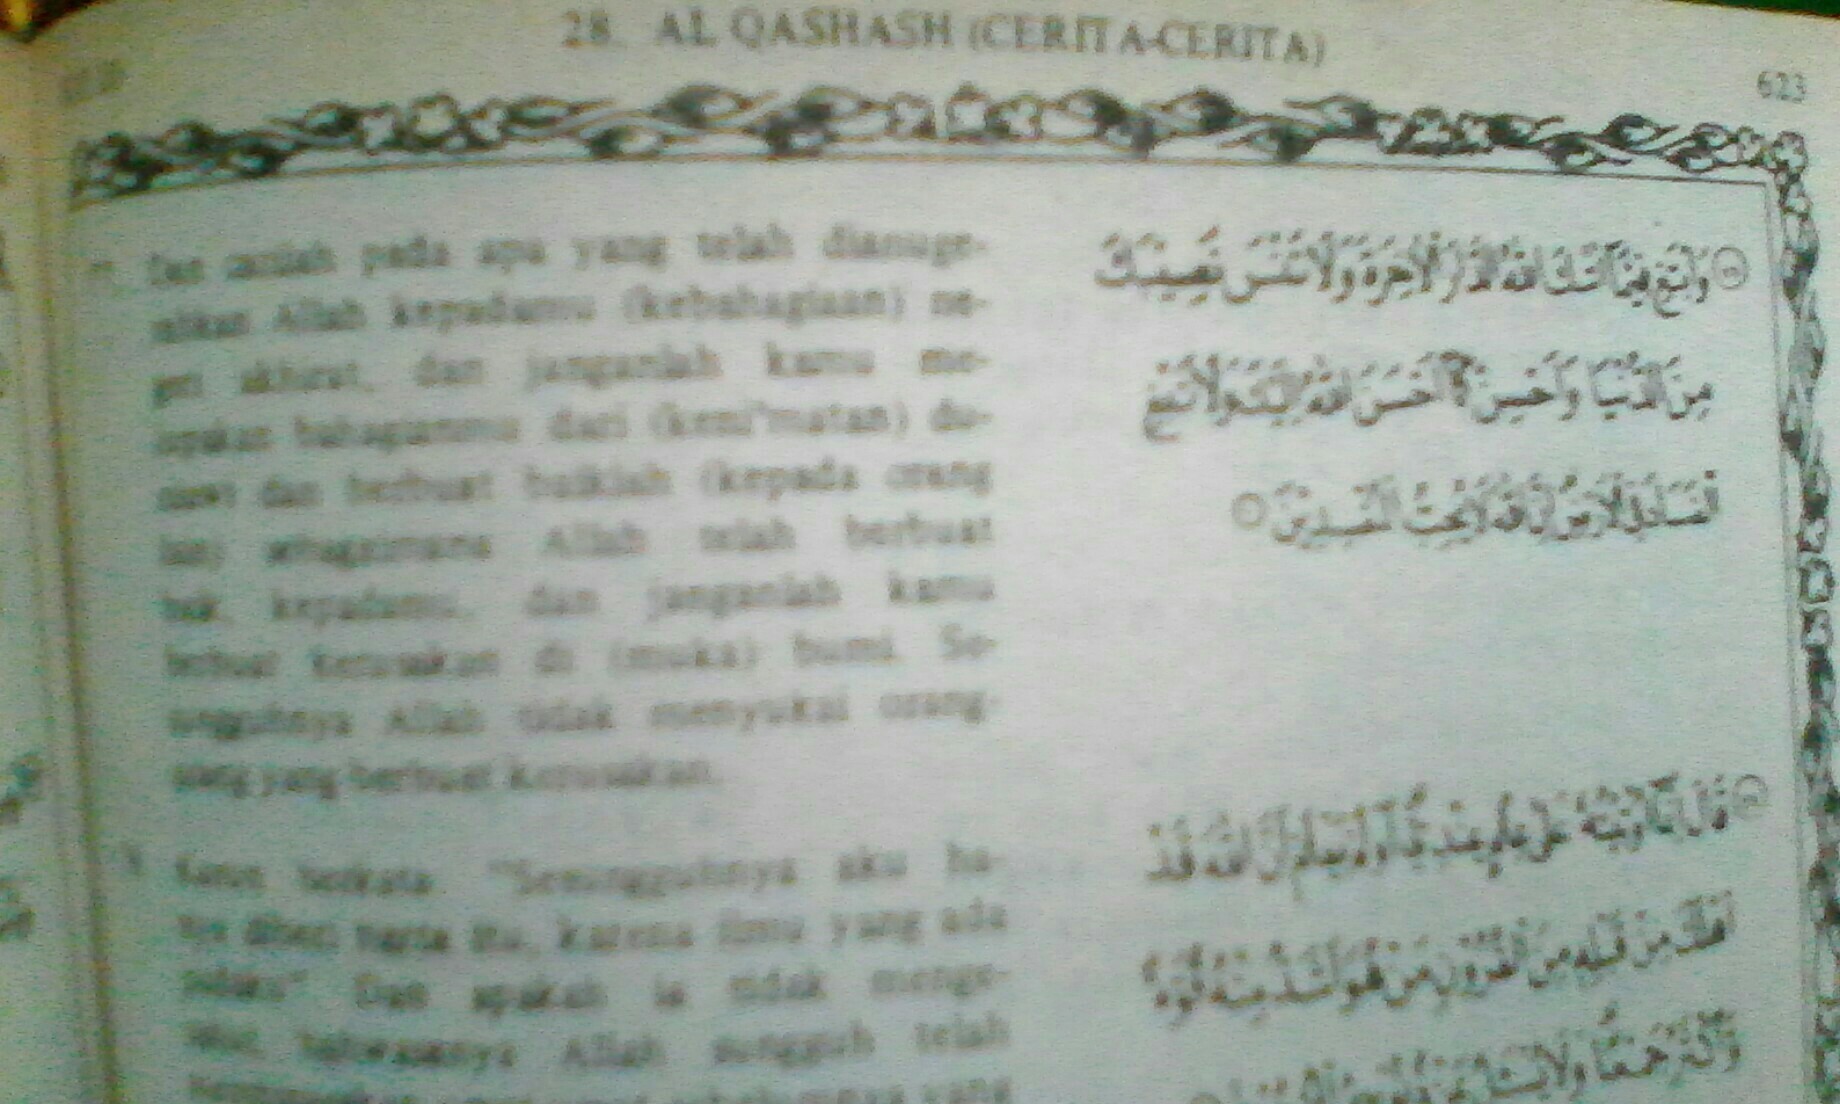 28. AL QASHASH (CERITA-CERITA)
623
Dan carilah pada apa yang telah dianuge-
rahkan Allah kepadamu (kebahagiaan) ne-
geri akhirat, dan janganlah kamu me-
lupakan bahagianmu dari (keni'matan) du-
niawi dan berbuat baiklah (kepada orang
lain) sebagaimana Allah telah berbuat
baik, kepadamu, dan janganlah kamu
berbuat kerusakan di (muka) bumi. Se-
sungguhnya Allah tidak menyukai orang-
orang yang berbuat kerusakan.
وَابْتَغِ فِيمَا آتَاكَ اللَّهُ الدَّارَ الْآخِرَةَ وَلَا تَنْسَ نَصِيبَكَ
مِنَ الدُّنْيَا وَأَحْسِنْ كَمَا أَحْسَنَ اللَّهُ إِلَيْكَ وَلَا تَبْغِ
الْفَسَادَ فِي الْأَرْضِ إِنَّ اللَّهَ لَا يُحِبُّ الْمُفْسِدِينَ
Karun berkata: "Sesungguhnya aku ha-
nya diberi harta itu, karena ilmu yang ada
padaku". Dan apakah ia tidak menge-
tahui, bahwasanya Allah sungguh telah
yang
قَالَ إِنَّمَا أُوتِيتُهُ عَلَىٰ عِلْمٍ عِنْدِي أَوَلَمْ يَعْلَمْ أَنَّ اللَّهَ قَدْ
أَهْلَكَ مِنْ قَبْلِهِ مِنَ الْقُرُونِ مَنْ هُوَ أَشَدُّ مِنْهُ قُوَّةً
وَأَكْثَرُ جَمْعًا وَلَا يُسْأَلُ